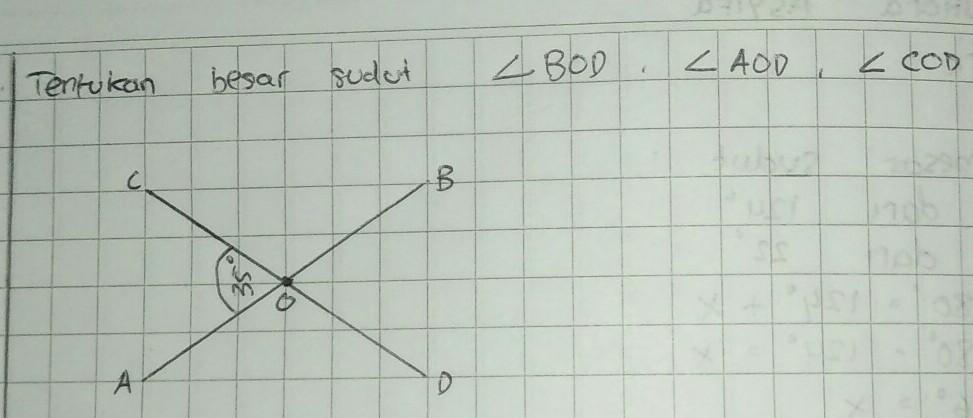 Tentukan besar sudut ∠BOD, ∠AOD, ∠COD
C B
35°
O
A D